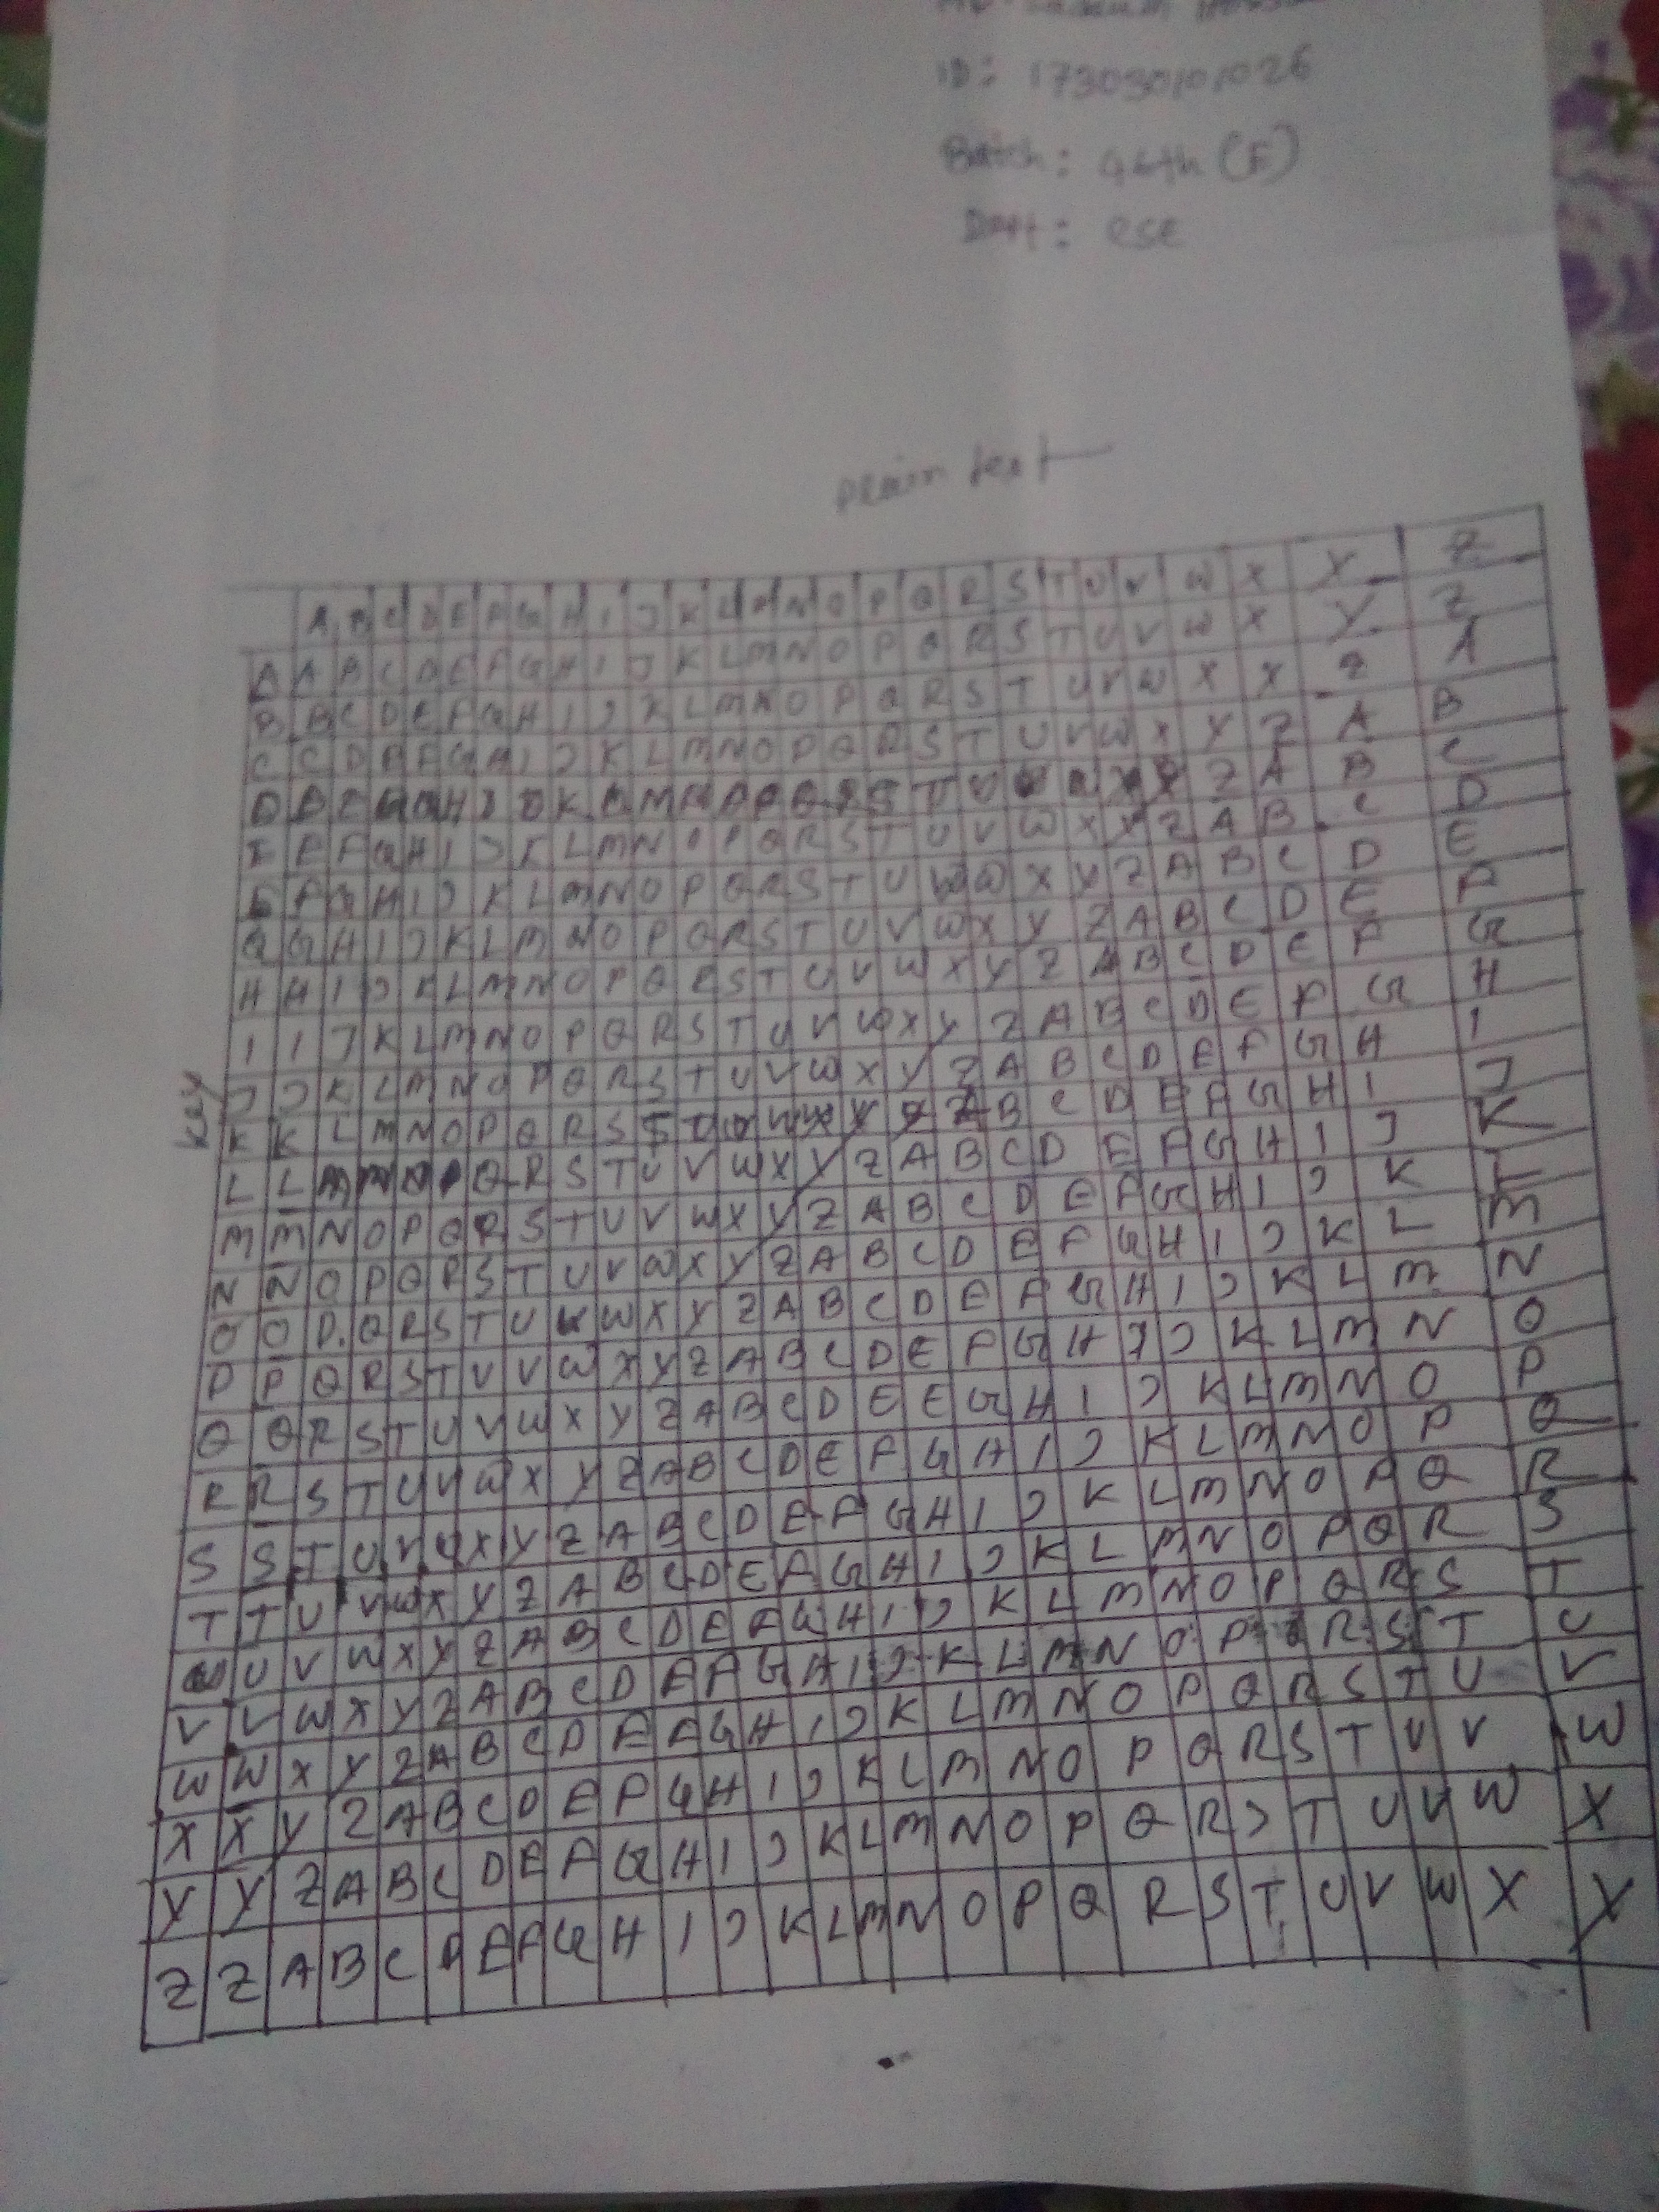 ID: 173030101026
Batch: 46th (E)
Dept: CSE
plain text
A B C D E F G H I J K L M N O P Q R S T U V W X Y Z
A A B C D E F G H I J K L M N O P Q R S T U V W X Y Z
B B C D E F G H I J K L M N O P Q R S T U V W X X Z A
C C D E F G H I J K L M N O P Q R S T U V W X Y Z A B
E E F G H I J K L M N O P Q R S T U V W X Y Z A B C D
G G H I J K L M N O P Q R S T U V W X Y Z A B C D E F
H H I J K L M N O P Q R S T U V W X Y Z A B C D E F G
I I J K L M N O P Q R S T U V W X Y Z A B C D E F G H
key
J J K L M N O P Q R S T U V W X Y Z A B C D E F G H I
M M N O P Q R S T U V W X Y Z A B C D E F G H I J K L
N N O P Q R S T U V W X Y Z A B C D E F G H I J K L M
P P Q R S T U V W X Y Z A B C D E F G H I J K L M N O
Q Q R S T U V W X Y Z A B C D E E G H I J K L M N O P
R R S T U V W X Y Z A B C D E F G H I J K L M N O P Q
S S T U V W X Y Z A B C D E F G H I J K L M N O P Q R
T T U V W X Y Z A B C D E F G H I J K L M N O P Q R S
U U V W X Y Z A B C D E F G H I J K L M N O P Q R S T
V V W X Y Z A B C D E F G H I J K L M N O P Q R S T U
W W X Y Z A B C D E F G H I J K L M N O P Q R S T U V
X X Y Z A B C D E F G H I J K L M N O P Q R S T U V W
Y Y Z A B C D E F G H I J K L M N O P Q R S T U V W X
Z Z A B C D E F G H I J K L M N O P Q R S T U V W X Y